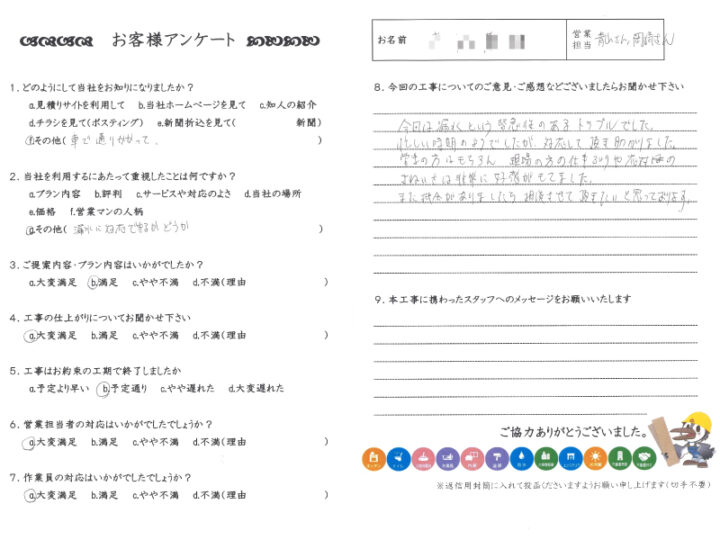 お客様アンケート
1. どのようにして当社をお知りになりましたか?
a.見積りサイトを利用して b.当社ホームページを見て c.知人の紹介
d.チラシを見て(ポスティング) e.新聞折込を見て( 新聞)
f.その他( 車で通りかかって、 )
2. 当社を利用するにあたって重視したことは何ですか?
a.プラン内容 b.評判 c.サービスや対応のよさ d.当社の場所
e.価格 f.営業マンの人柄
g.その他( 漏水に対応できるかどうか )
3. ご提案内容・プラン内容はいかがでしたか?
a.大変満足 b.満足 c.やや不満 d.不満(理由 )
4. 工事の仕上がりについてお聞かせ下さい
a.大変満足 b.満足 c.やや不満 d.不満(理由 )
5. 工事はお約束の工期で終了しましたか
a.予定より早い b.予定通り c.やや遅れた d.大変遅れた
6. 営業担当者の対応はいかがでしたでしょうか?
a.大変満足 b.満足 c.やや不満 d.不満(理由 )
7. 作業員の対応はいかがでしたでしょうか?
a.大変満足 b.満足 c.やや不満 d.不満(理由 )
お名前
営業担当 青山さん,岡崎さん
8. 今回の工事についてのご意見・ご感想などございましたらお聞かせ下さい
今回は漏水という緊急性のあるトラブルでした。
忙しい時期のようでしたが、対応して頂き助かりました。
営業の方はもちろん 現場の方の仕事ぶりや応対の
ていねいさは非常に好感がもてました。
また機会がありましたら相談させて頂きたいと思っております。
9. 本工事に携わったスタッフへのメッセージをお願いいたします
ご協力ありがとうございました。
キッチン トイレ
※返信用封筒に入れて投函くださいますようお願い申し上げます(切手不要)